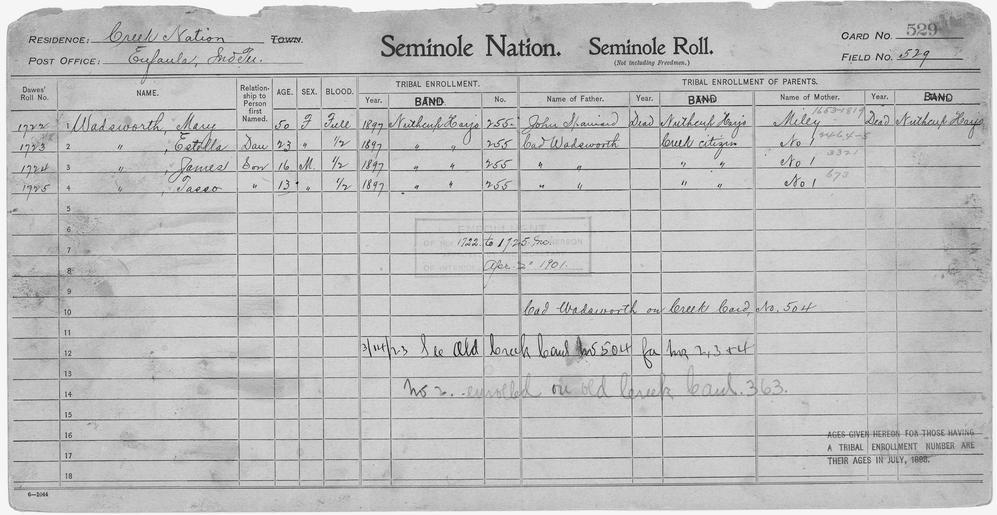 RESIDENCE: Creek Nation TOWN.
POST OFFICE: Eufaula, Ind Ter.
Seminole Nation. Seminole Roll.
(Not including Freedmen.)
CARD NO. 529
FIELD NO. 529
TRIBAL ENROLLMENT. TRIBAL ENROLLMENT OF PARENTS.
Dawes' Roll No. NAME. Relationship to Person first Named. AGE. SEX. BLOOD. Year. BAND No. Name of Father. Year. BAND Name of Mother. Year. BAND
1722 1 Wadsworth, Mary 50 F Full 1897 Nuthcup Harjo 255 John Spaniard Dead Nuthcup Harjo Miley Dead Nuthcup Harjo
1723 2 " , Estella Dau 23 " 1/2 " " 255 Cad Wadsworth Creek citizen No 1
1724 3 " , James Son 16 M. 1/2 1897 " " 255 " " " " No 1 3321
1725 4 " , Tasso " 13 " 1/2 1897 " " 255 " " " " No 1 673
5
6
ENROLLMENT
7 1722 to 1725 Inc.
8 Apr. 2" 1901.
9
10 Cad Wadsworth on Creek Card, No. 504
11
12 3/14/23 See Old Creek Card No 504 for No 2, 3 + 4
13
14 No 2. enrolled on old Creek Card. 363.
15
16
17
18
AGES GIVEN HEREON FOR THOSE HAVING
A TRIBAL ENROLLMENT NUMBER ARE
THEIR AGES IN JULY, 1898.
6-1044